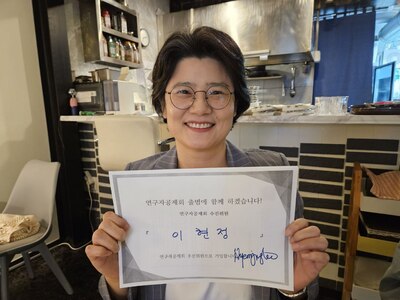 연구자공제회 출범에 함께 하겠습니다!
연구자공제회 추진위원
' 이 현 정 '
연구자공제회 추진위원으로 가입합니다